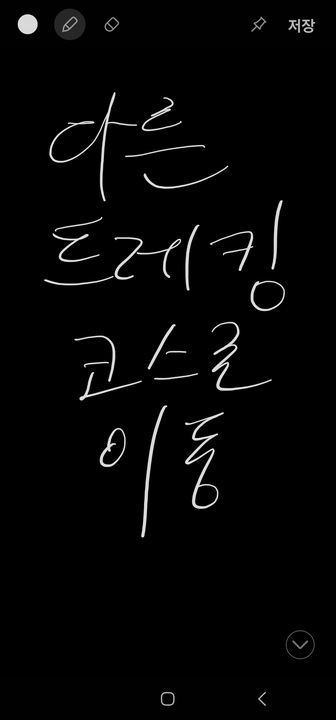 저장
다른
트레킹
코스로
이동